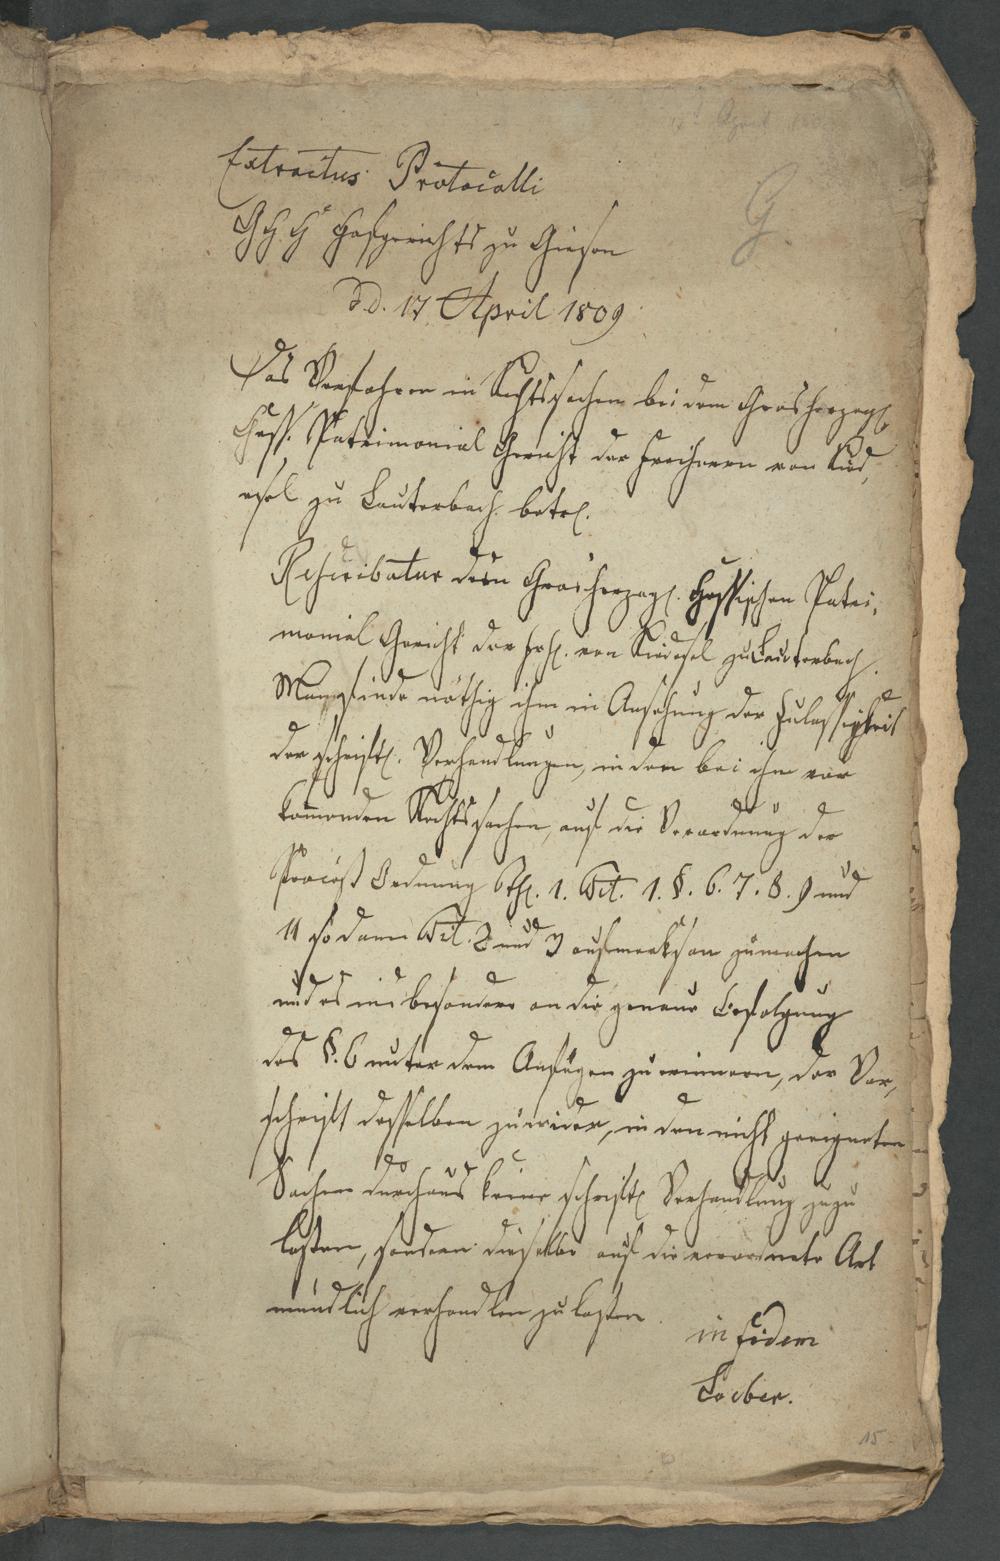 17t April 180
G
Extractus Protocolli
G H Hn Hofgerichts zu Giesen
D.d. 17 April 1809
Das Verfahren in Rechtssachen bei dem Grosherzogl.
Hess. Patrimonial Gericht der Freiherrn von Ried,
esel zu Lauterbach betrf.
Rescribatur dem Grosherzogl. Hessischen Patri,
monial Gericht der Frhl. von Riedesel zu Lauterbach.
Man finde nöthig ihm in Ansehung der Zulassigkeit
der schriftl. Verhandlungen, in den bei ihm vor
kommenden Rechtssachen, auf die Verordnung der
Proceß Ordnung Thl. 1. Tit. 1. §. 6. 7. 8. 9 und
11 so dann Tit. 2 und 3 aufmerksam zumachen
und es insbesondere an die genaue Befolgung
des §. 6 unter dem Anfügen zuerinnern, der Vor,
schrift desselben zuwider, in den nicht geeigneten
Sachen durchaus keine schriftl Verhandlung zuzu
lassen, sondern dieselbe auf die verordnete Art
mündlich verhandlen zu lassen.
in fidem
Loeber.
15